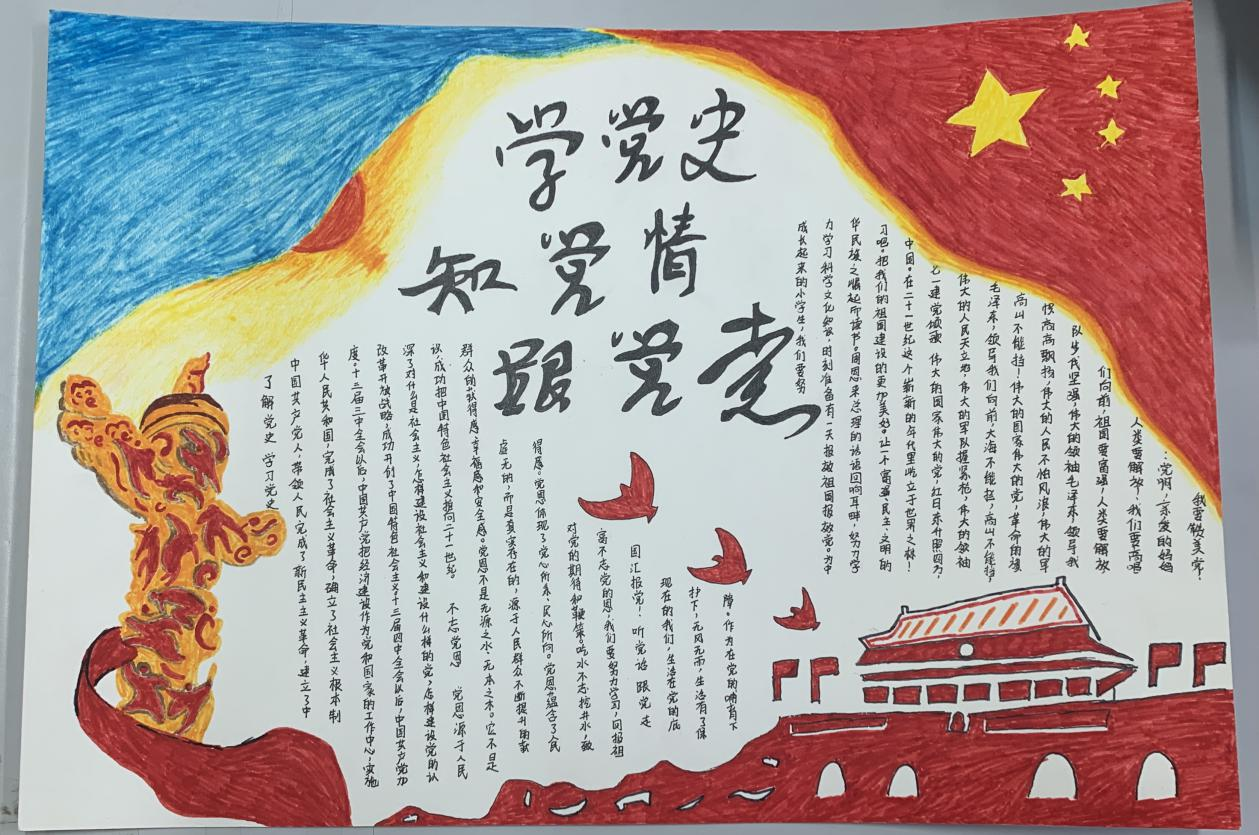 学党史
知党情
跟党走
我要
:党啊,亲爱的妈妈
人类要解放,我们要高唱
们向前,祖国要富强,人类要解放
队步伐坚强,伟大的领袖毛泽东,领导我
高高飘扬,伟大的人民不怕风浪,伟大的军
高山不能挡!伟大的国家伟大的党,革命的旗
毛泽东,领导我们向前,大海不能挡,高山不能挡,
伟大的人民天立地,伟大的军队握紧枪,伟大的领袖
一建党颂歌 伟大的国家伟大的党,红日东升照四方,
中国。在二十一世纪这个崭新的年代里屹立于世界之林!
习吧。把我们的祖国建设的更加美好。让一个富强、民主、文明的
华民族之崛起而读书。周恩来总理的话语回响耳畔,努力学
力学习科学文化知识,时刻准备有一天报效祖国报效党。为中
成长起来的小学生,我们要努
了解党史 学习党史
中国共产党人,带领人民完成了新民主主义革命,建立了中
华人民共和国,完成了社会主义革命,确立了社会主义根本制
度。十三届三中全会以后,中国共产党把经济建设作为党和国家的工作中心,实施
改革开放战略,成功开创了中国特色社会主义十三届四中全会以后,中国共产党加
深了对什么是社会主义,怎样建设社会主义和建设什么样的党,怎样建设党的认
识,成功把中国特色社会主义推向二十一世纪。
不忘党恩 党恩源于人民
群众的获得感、幸福感和安全感。党恩不是无源之水、无本之木。它不是
虚无的,而是真实存在的,源于人民群众不断提升的获
得感。党恩体现了党心所系、民心所向。党恩蕴含了人民
对党的期待和鞭策。吃水不忘挖井水,致
富不忘党的恩,我们要努力学习,回报祖
国汇报党! 听党话 跟党走
现在的我们,生活在党的庇
护下,无风无雨,生活有了保
障。作为在党的哺育下